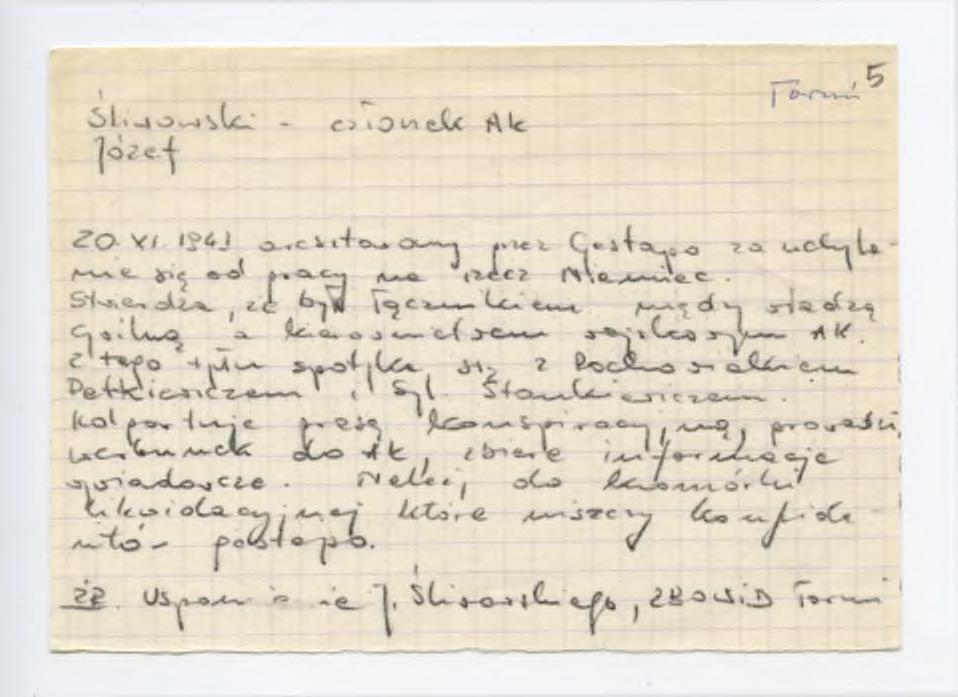 Toruń 5
Śliwowski - członek AK
Józef
20.XI.1943 aresztowany przez Gestapo za uchyle-
nie się od pracy na rzecz Niemiec.
Stwierdza, że był łącznikiem między władzą
cywilną a kierownictwem wojskowym AK.
Z tego tytułu spotyka się z Rochowiakiem
Detkiewiczem i Syl. Stankiewiczem.
Kolportuje prasę konspiracyjną, prowadzi
werbunek do AK, zbiera informacje
wywiadowcze. Należy do komórki
likwidacyjnej która niszczy konfide-
ntów gestapo.
źr. Wspomnienie J. Śliwowskiego, ZBOWiD Toruń